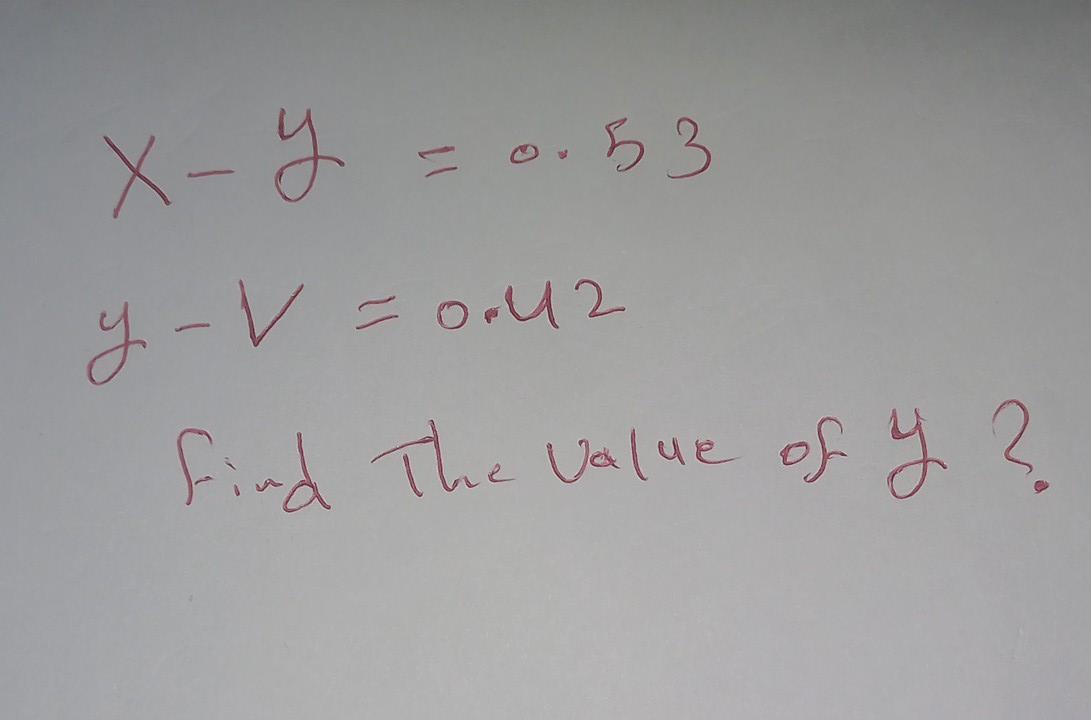 X - y = 0.53
y - V = 0.42
Find The Value of y ?